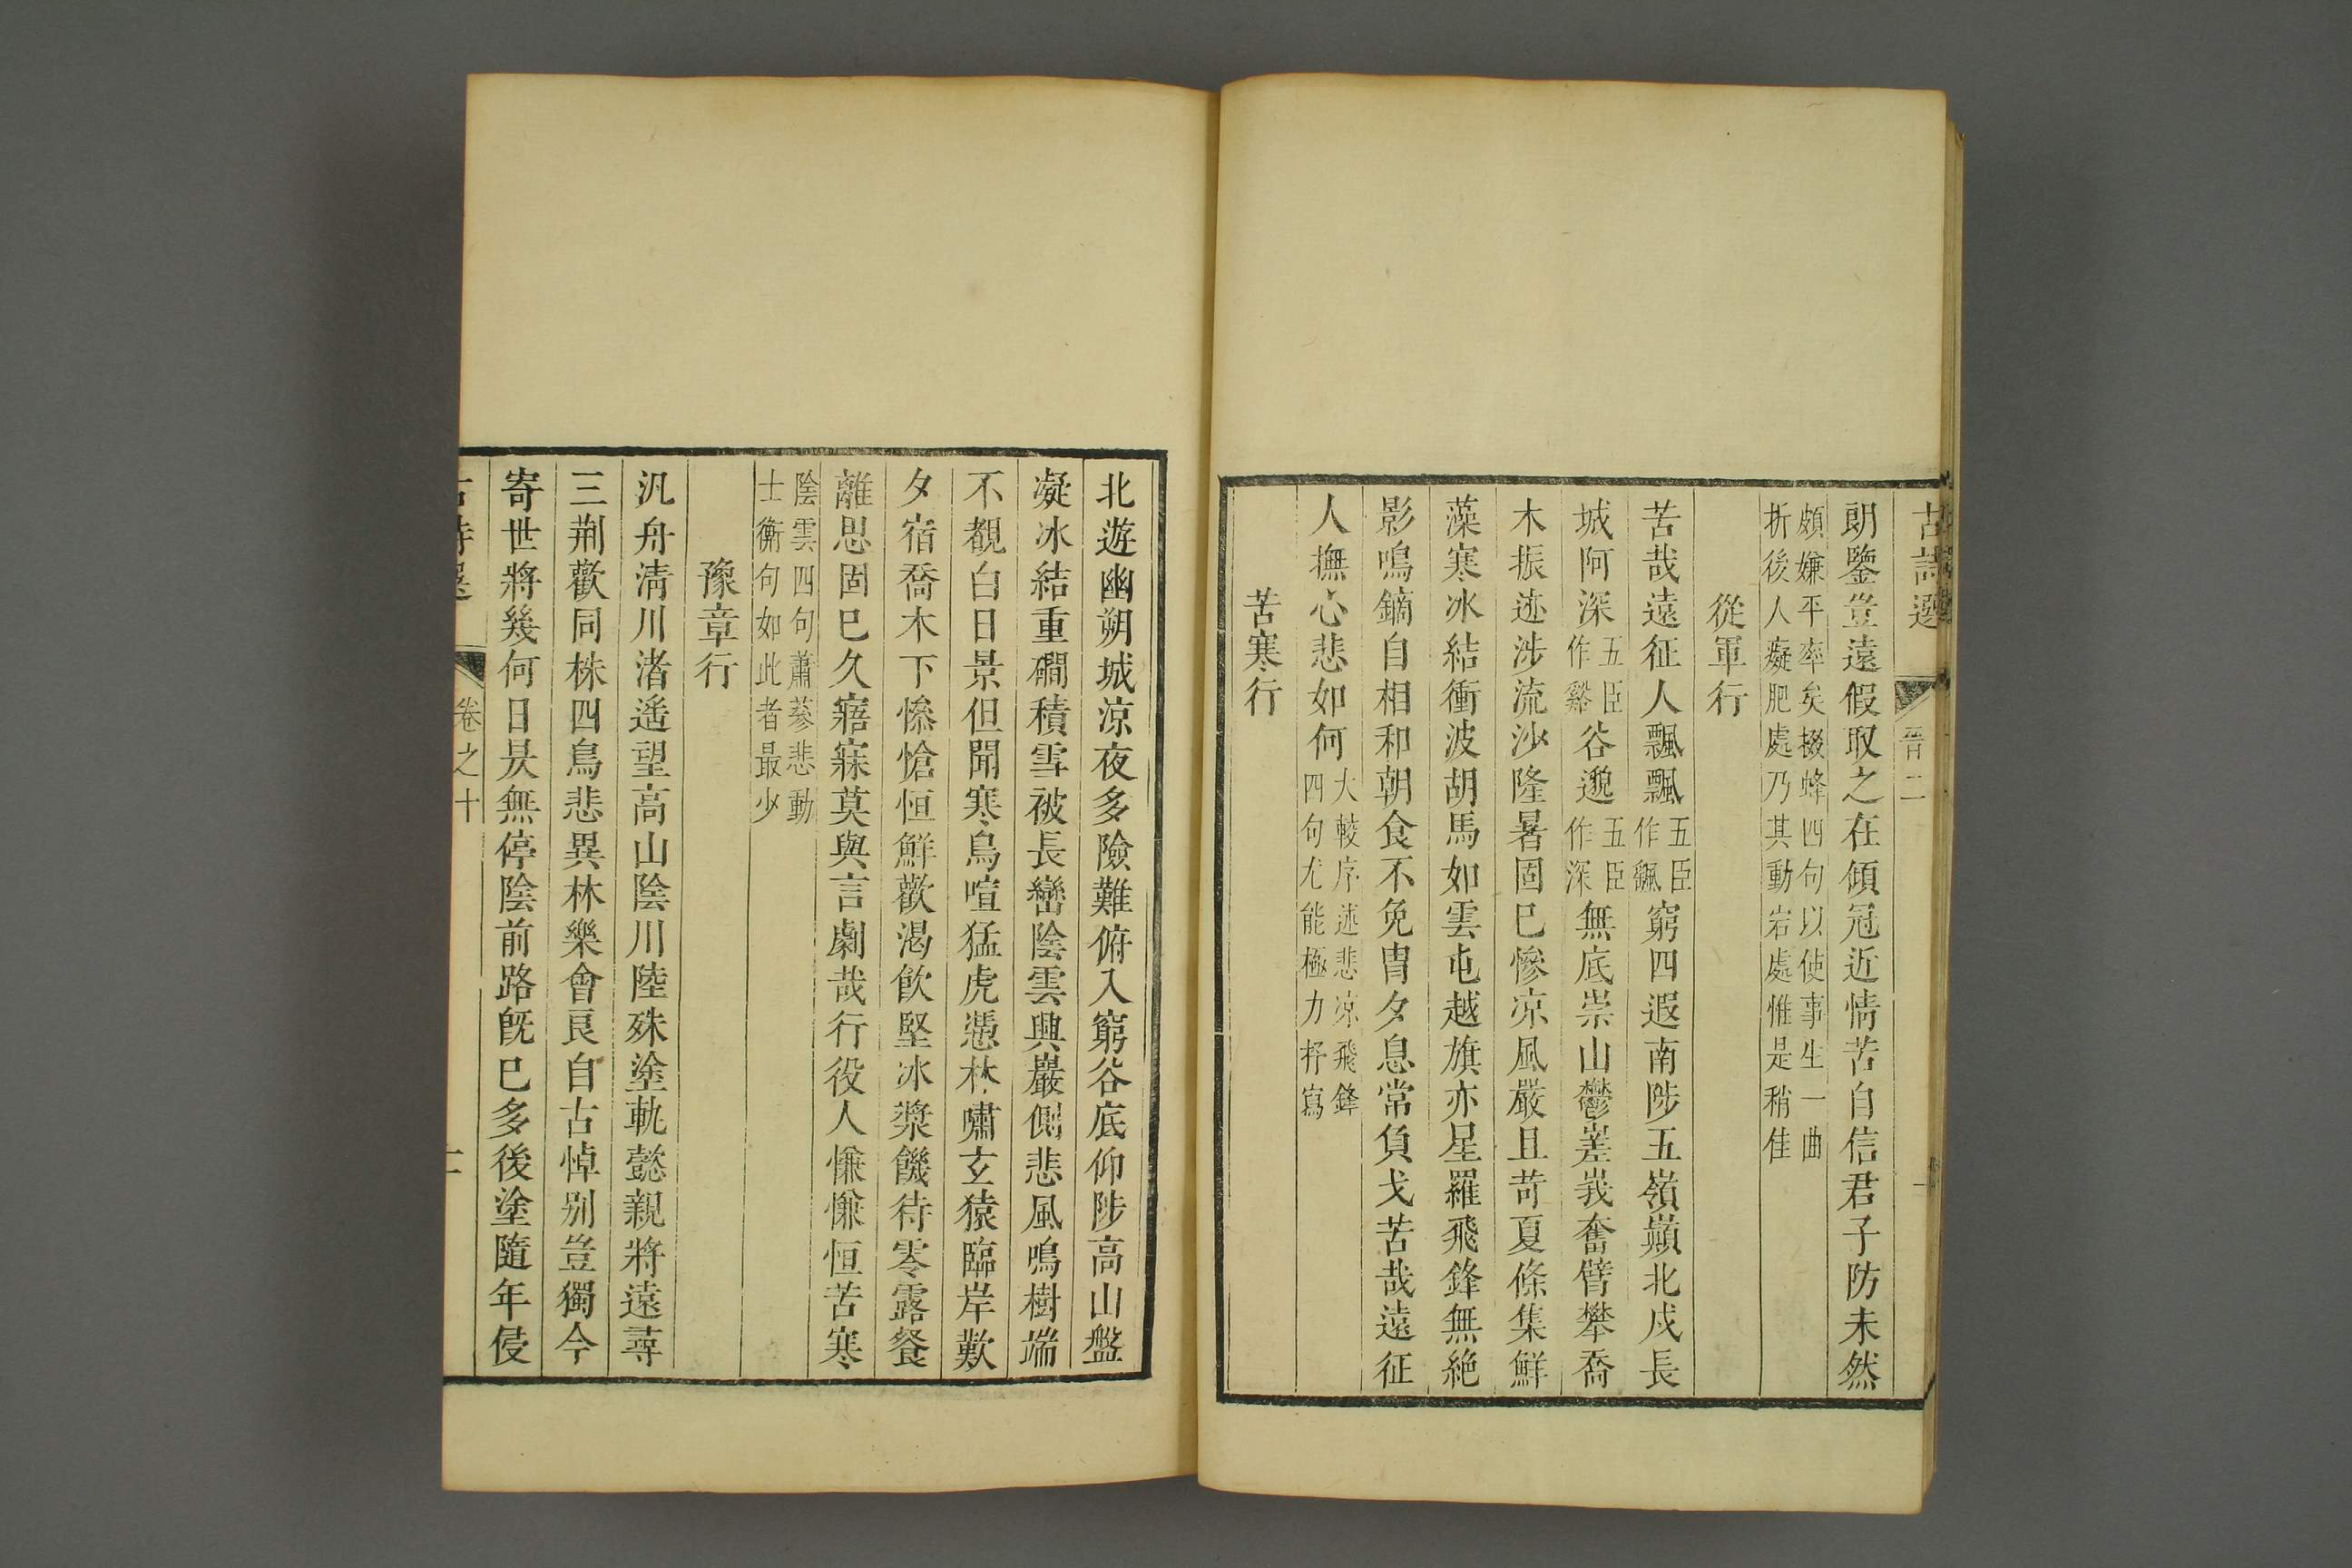 古詩選 晉二
朗鑒豈遠假取之在傾冠近情苦自信君子防未然
頗嫌平率矣掇蜂四句以使事生一曲
折後人癡肥處乃其動宕處惟是稍佳
從軍行
苦哉遠征人飄飄五臣作飆窮四遐南陟五嶺巔北戍長
城阿深五臣作谿谷邈五臣作深無底崇山鬱嵳峩奮臂攀喬
木振迹涉流沙隆暑固巳慘凉風嚴且苛夏條集鮮
藻寒冰結衝波胡馬如雲屯越旗亦星羅飛鋒無絶
影鳴鏑自相和朝食不免冑夕息常負戈苦哉遠征
人撫心悲如何大較序述悲凉飛鋒四句尤能極力抒寫
苦寒行
北遊幽朔城凉夜多險難俯入窮谷底仰陟高山盤
凝冰結重磵積雪被長巒陰雲興巖側悲風鳴樹端
不覩白日景但聞寒鳥喧猛虎憑林嘯玄猿臨岸歎
夕宿喬木下慘愴恒鮮歡渴飮堅冰漿饑待零露餐
離思固巳久寤寐莫與言劇哉行役人慊慊恒苦寒
陰雲四句蕭蔘悲動
士衡句如此者最少
豫章行
汎舟淸川渚遥望高山陰川陸殊塗軌懿親將遠尋
三荆歡同株四鳥悲異林樂會良自古悼别豈獨今
寄世將幾何日昃無停陰前路旣巳多後塗隨年侵
古詩選 卷之十